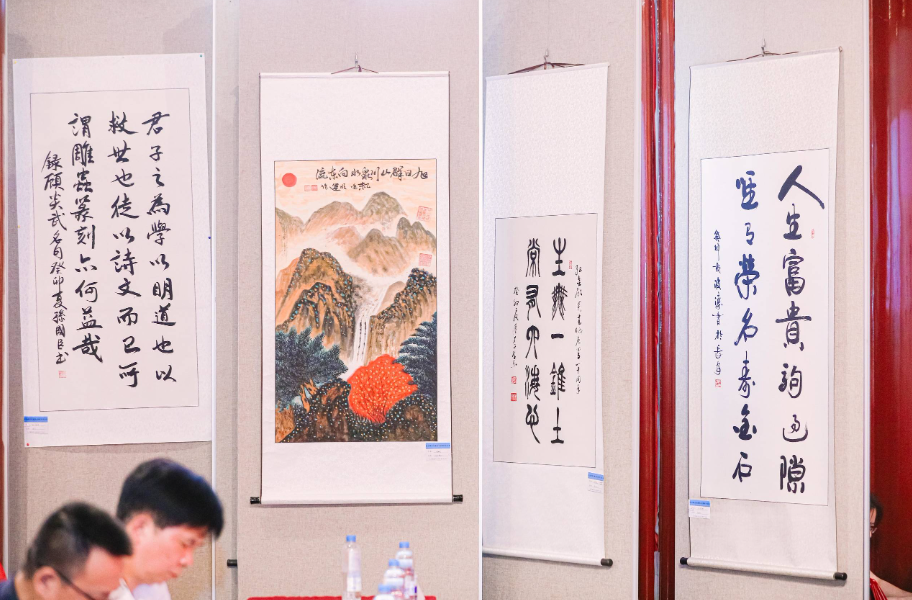 君子之為學以明道也以
救世也徒以詩文而已所
謂雕蟲篆刻亦何益哉
錄顧炎武名句癸卯夏孫國臣書
旭日群山川泉水向東流
生無一錐土
常有四海心
人生富貴駒過隙
唯有榮名壽金石